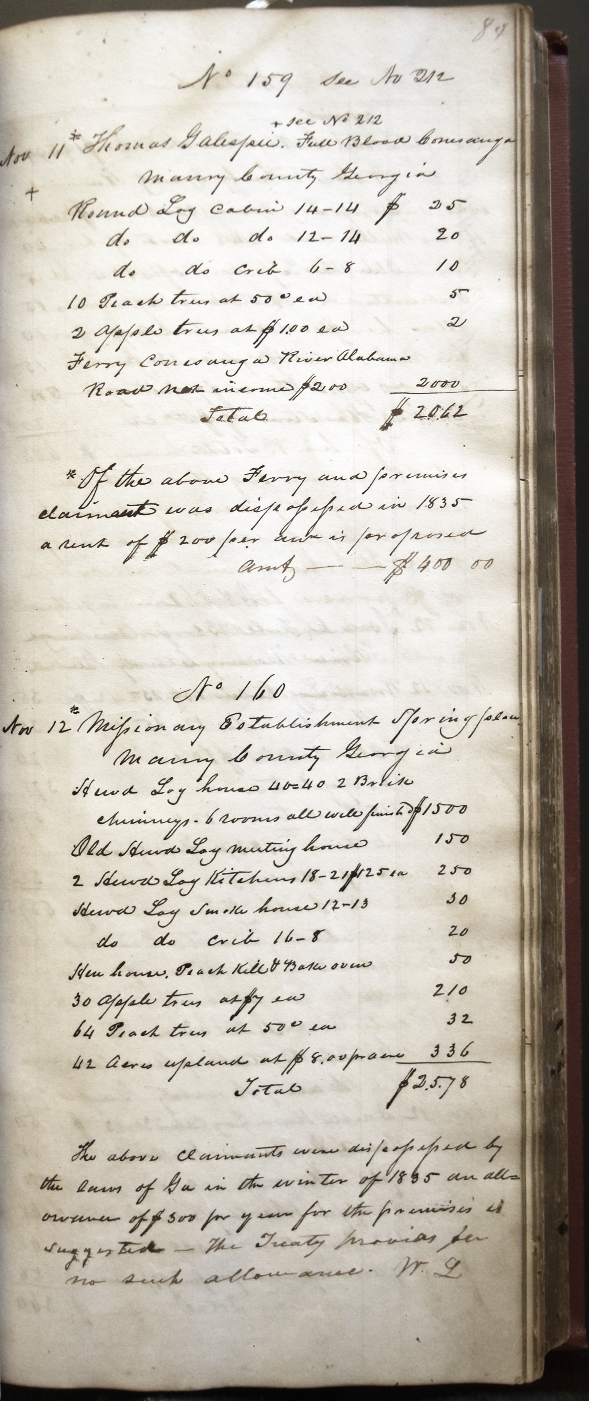 N° 159 see No 212
+ see N° 212
Nov 11 * Thomas Galespie. Full Blood Conesauga
+ Murry County Georgia
Round Log cabin 14-14 $ 25
do do do 12-14 20
do do crib 6-8 10
10 Peach trees at 50c ea 5
2 Apple trees at $1.00 ea 2
Ferry Conesauga River Alabama
Road net income $200 2000
Total $ 2062
* Of the above Ferry and premises
claimant was dispossessed in 1835
a rent of $200 per ann is proposed
Amt — — $ 400 00
N° 160
Nov 12 * Missionary Establishment Spring place
Murry County Georgia
Hewd Log house 40=40 2 Brick
chimneys - 6 rooms all well finishd $1500
Old Hewd Log meeting house 150
2 Hewd Log Kitchens 18-21 $125 ea 250
Hewd Log Smoke house 12-13 30
do do crib 16-8 20
Hen house, Peach Kill & Bake oven 50
30 Apple trees at $7 ea 210
64 Peach trees at 50c ea 32
42 Acres upland at $8.00 pr acre 336
Total $2578
The above claimants were dispossessed by
the laws of Ga in the winter of 1835 an all=
owance of $300 pr year for the premises is
suggested — The Treaty provides for
no such allowance. W. L